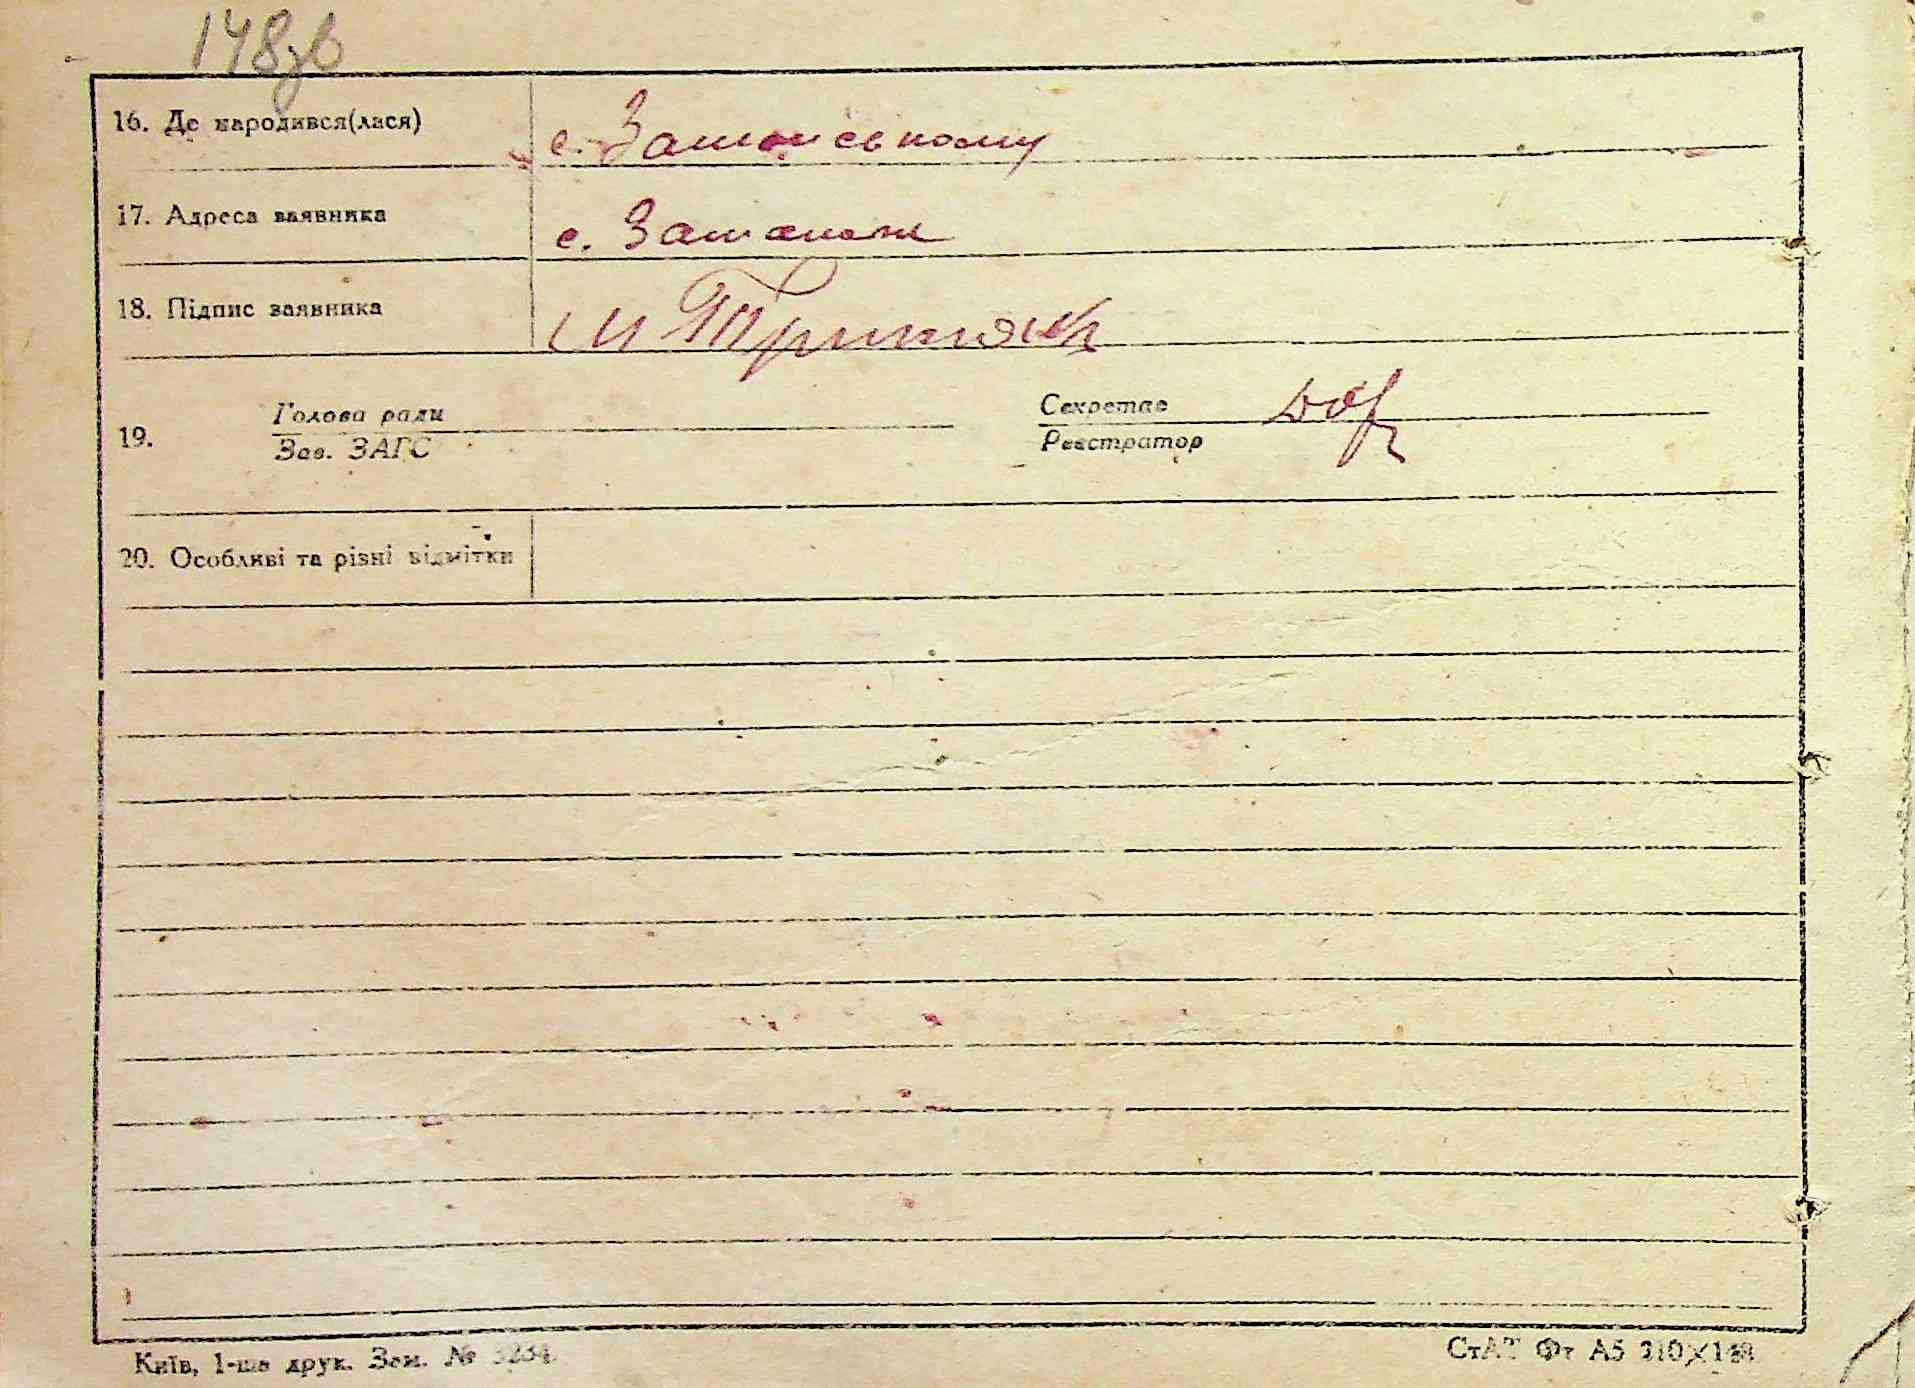 148зв
16. Де народився(лася)
с.
17. Адреса заявника
с.
18. Підпис заявника
М
Голова ради
Секретар
19.
Зав. ЗАГС
Реєстратор
20. Особливі та різні відмітки
Київ, 1-ша друк. Зам. № 3234.
СтАТ Фт А5 210×148